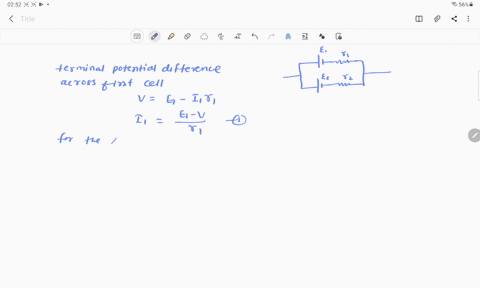 02:52
56%
Title
terminal potential difference
across first cell
V = E₁ - I₁ r₁
I₁ = E₁-V / r₁ — A
for the
E₁ r₁
E₂ r₂